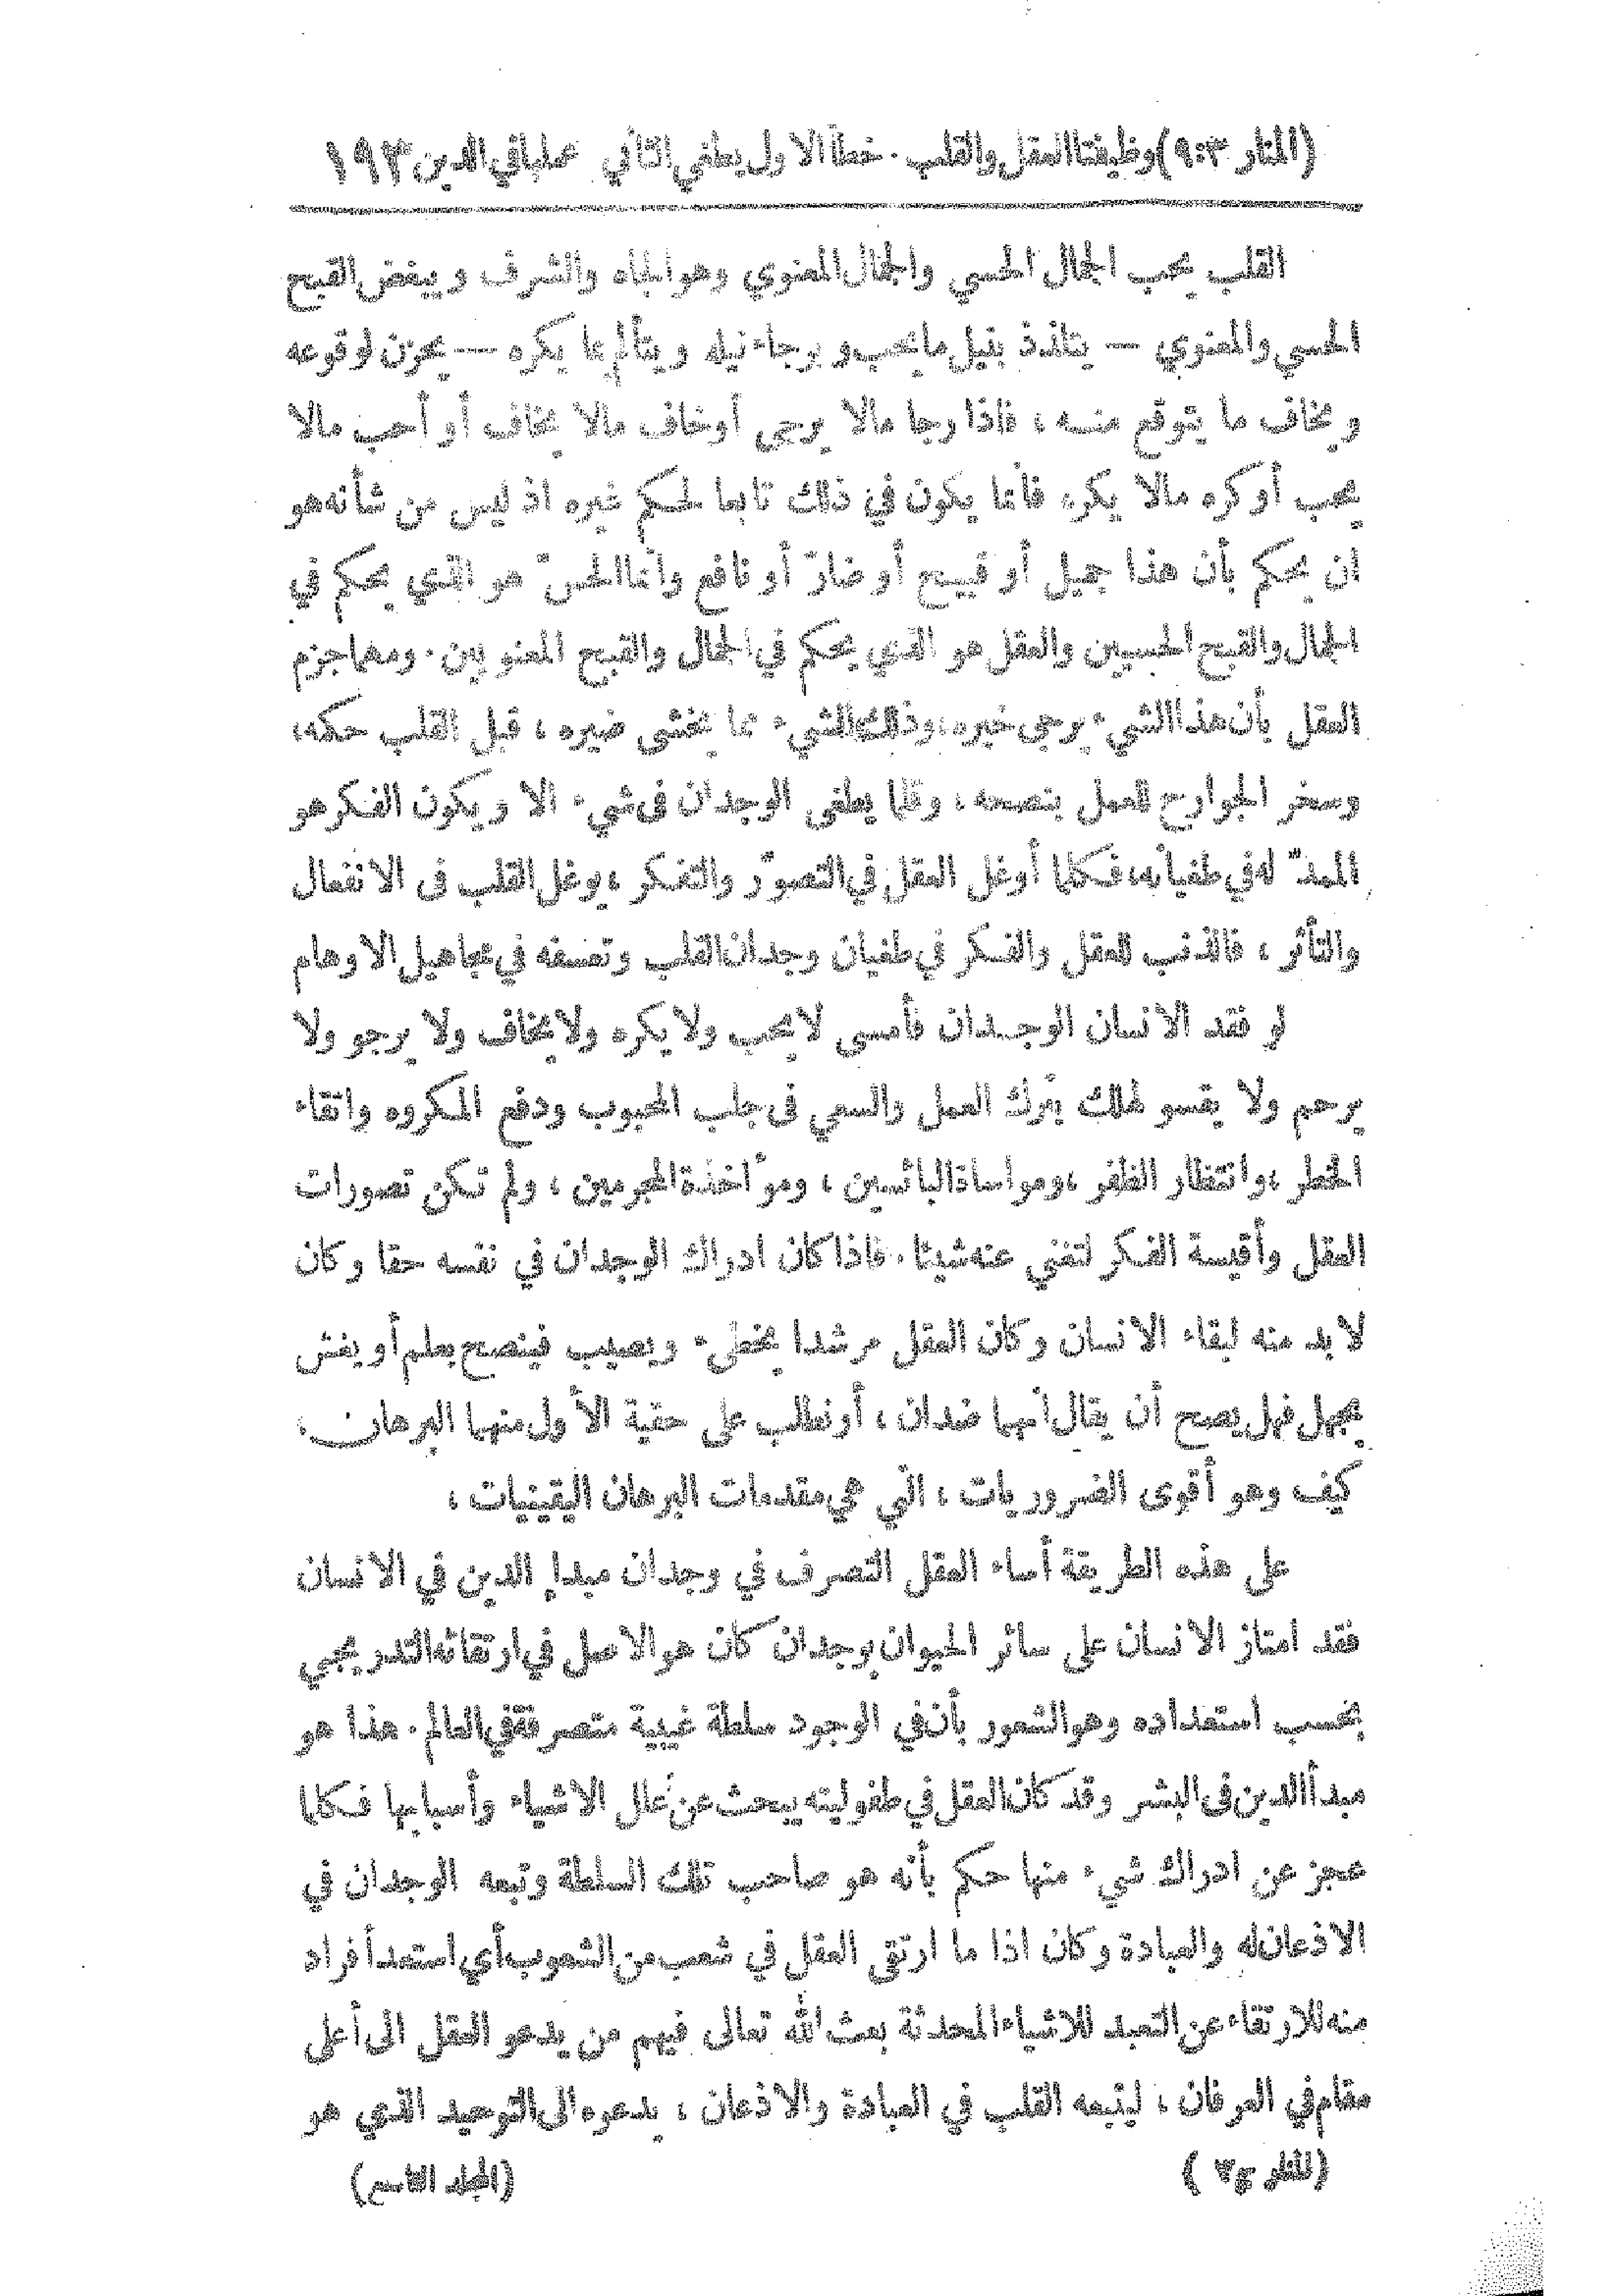 (المنار ٩:٣) وظيفتا العقل والقلب. خطأ الاول يطغي الثاني عمليا في الدين ١٩٣
القلب يحب الجمال الحسي والجمال المعنوي وهو الجاه والشرف ويبغض القبح
الحسي والمعنوي — يتلذذ بنيل ما يحب وبرجاء نيله ويتألم مما يكره — يحزن لوقوعه
ويخاف ما يتوقع منه، فاذا رجا مالا يرجى أوخاف مالا يخاف أو أحب مالا
يحب أو كره مالا يكره فانما يكون في ذلك تابعا لحكم غيره اذ ليس من شأنه هو
ان يحكم بأن هذا جميل أو قبيح أو ضارّ أو نافع وانما الحسّ هو الذي يحكم في
الجمال والقبح الحسيين والعقل هو الذي يحكم في الجمال والقبح المعنويين. ومهما جزم
العقل بأن هذا الشيء يرجى خيره، وذلك الشيء مما يخشى ضيره، قبل القلب حكمه،
وسخر الجوارح للعمل بنصحه، وقلما يطغى الوجدان في شيء الا ويكون الفكر هو
الممدّ له في طغيانه، فكلما أوغل العقل في التصوّر والتفكر، يوغل القلب في الانفعال
والتأثر، فالذنب للعقل والفكر في طغيان وجدان القلب وتعسفه في مجاهيل الاوهام
لو فقد الانسان الوجدان فأمسى لا يحب ولا يكره ولا يخاف ولا يرجو ولا
يرحم ولا يقسو لهلك بترك العمل والسعي في جلب المحبوب ودفع المكروه واتقاء
الخطر، وانتظار الظفر، ومواساة البائسين، ومؤاخذة المجرمين، ولم تكن تصورات
العقل وأقيسة الفكر لتغني عنه شيئا. فاذا كان ادراك الوجدان في نفسه حقا وكان
لا بد منه لبقاء الانسان وكان العقل مرشدا يخطيء ويصيب فينصح بعلم أو يغش
بجهل فهل يصح أن يقال انهما ضدان، أو نطلب على حقية الأول منهما البرهان،
كيف وهو أقوى الضروريات، التي هي مقدمات البرهان اليقينيات،
على هذه الطريقة أساء العقل التصرف في وجدان مبدإ الدين في الانسان
فقد امتاز الانسان على سائر الحيوان بوجدان كان هو الاصل في ارتقائه التدريجي
بحسب استعداده وهو الشعور بأن في الوجود سلطة غيبية متصرفة في العالم. هذا هو
مبدأ الدين في البشر وقد كان العقل في طفوليته يبحث عن علل الاشياء وأسبابها فكلما
عجز عن ادراك شيء منها حكم بأنه هو صاحب تلك السلطة وتبعه الوجدان في
الاذعان له والعبادة وكان اذا ما ارتقى العقل في شعب من الشعوب أي استعد أفراد
منه للارتقاء عن التعبد للاشياء المحدثة بعث الله تعالى فيهم من يدعو العقل الى أعلى
مقام في العرفان، ليتبعه القلب في العبادة والاذعان، يدعوه الى التوحيد الذي هو
(المجلد التاسع)